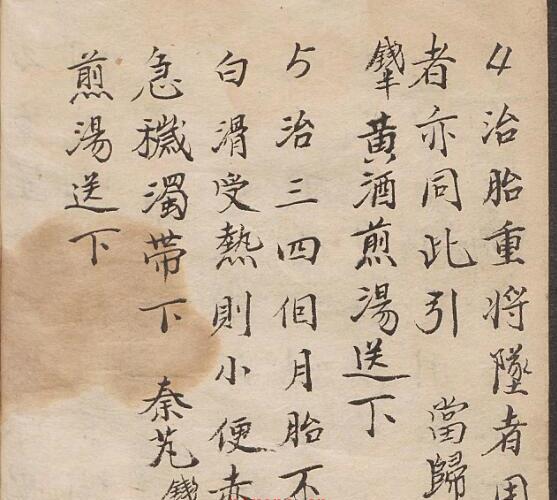 4治胎重將墜者用
者亦同此引 當歸
錢半黃酒煎湯送下
5治三四個月胎不
白滑受熱則小便赤
急穢濁帶下 秦艽錢
煎湯送下